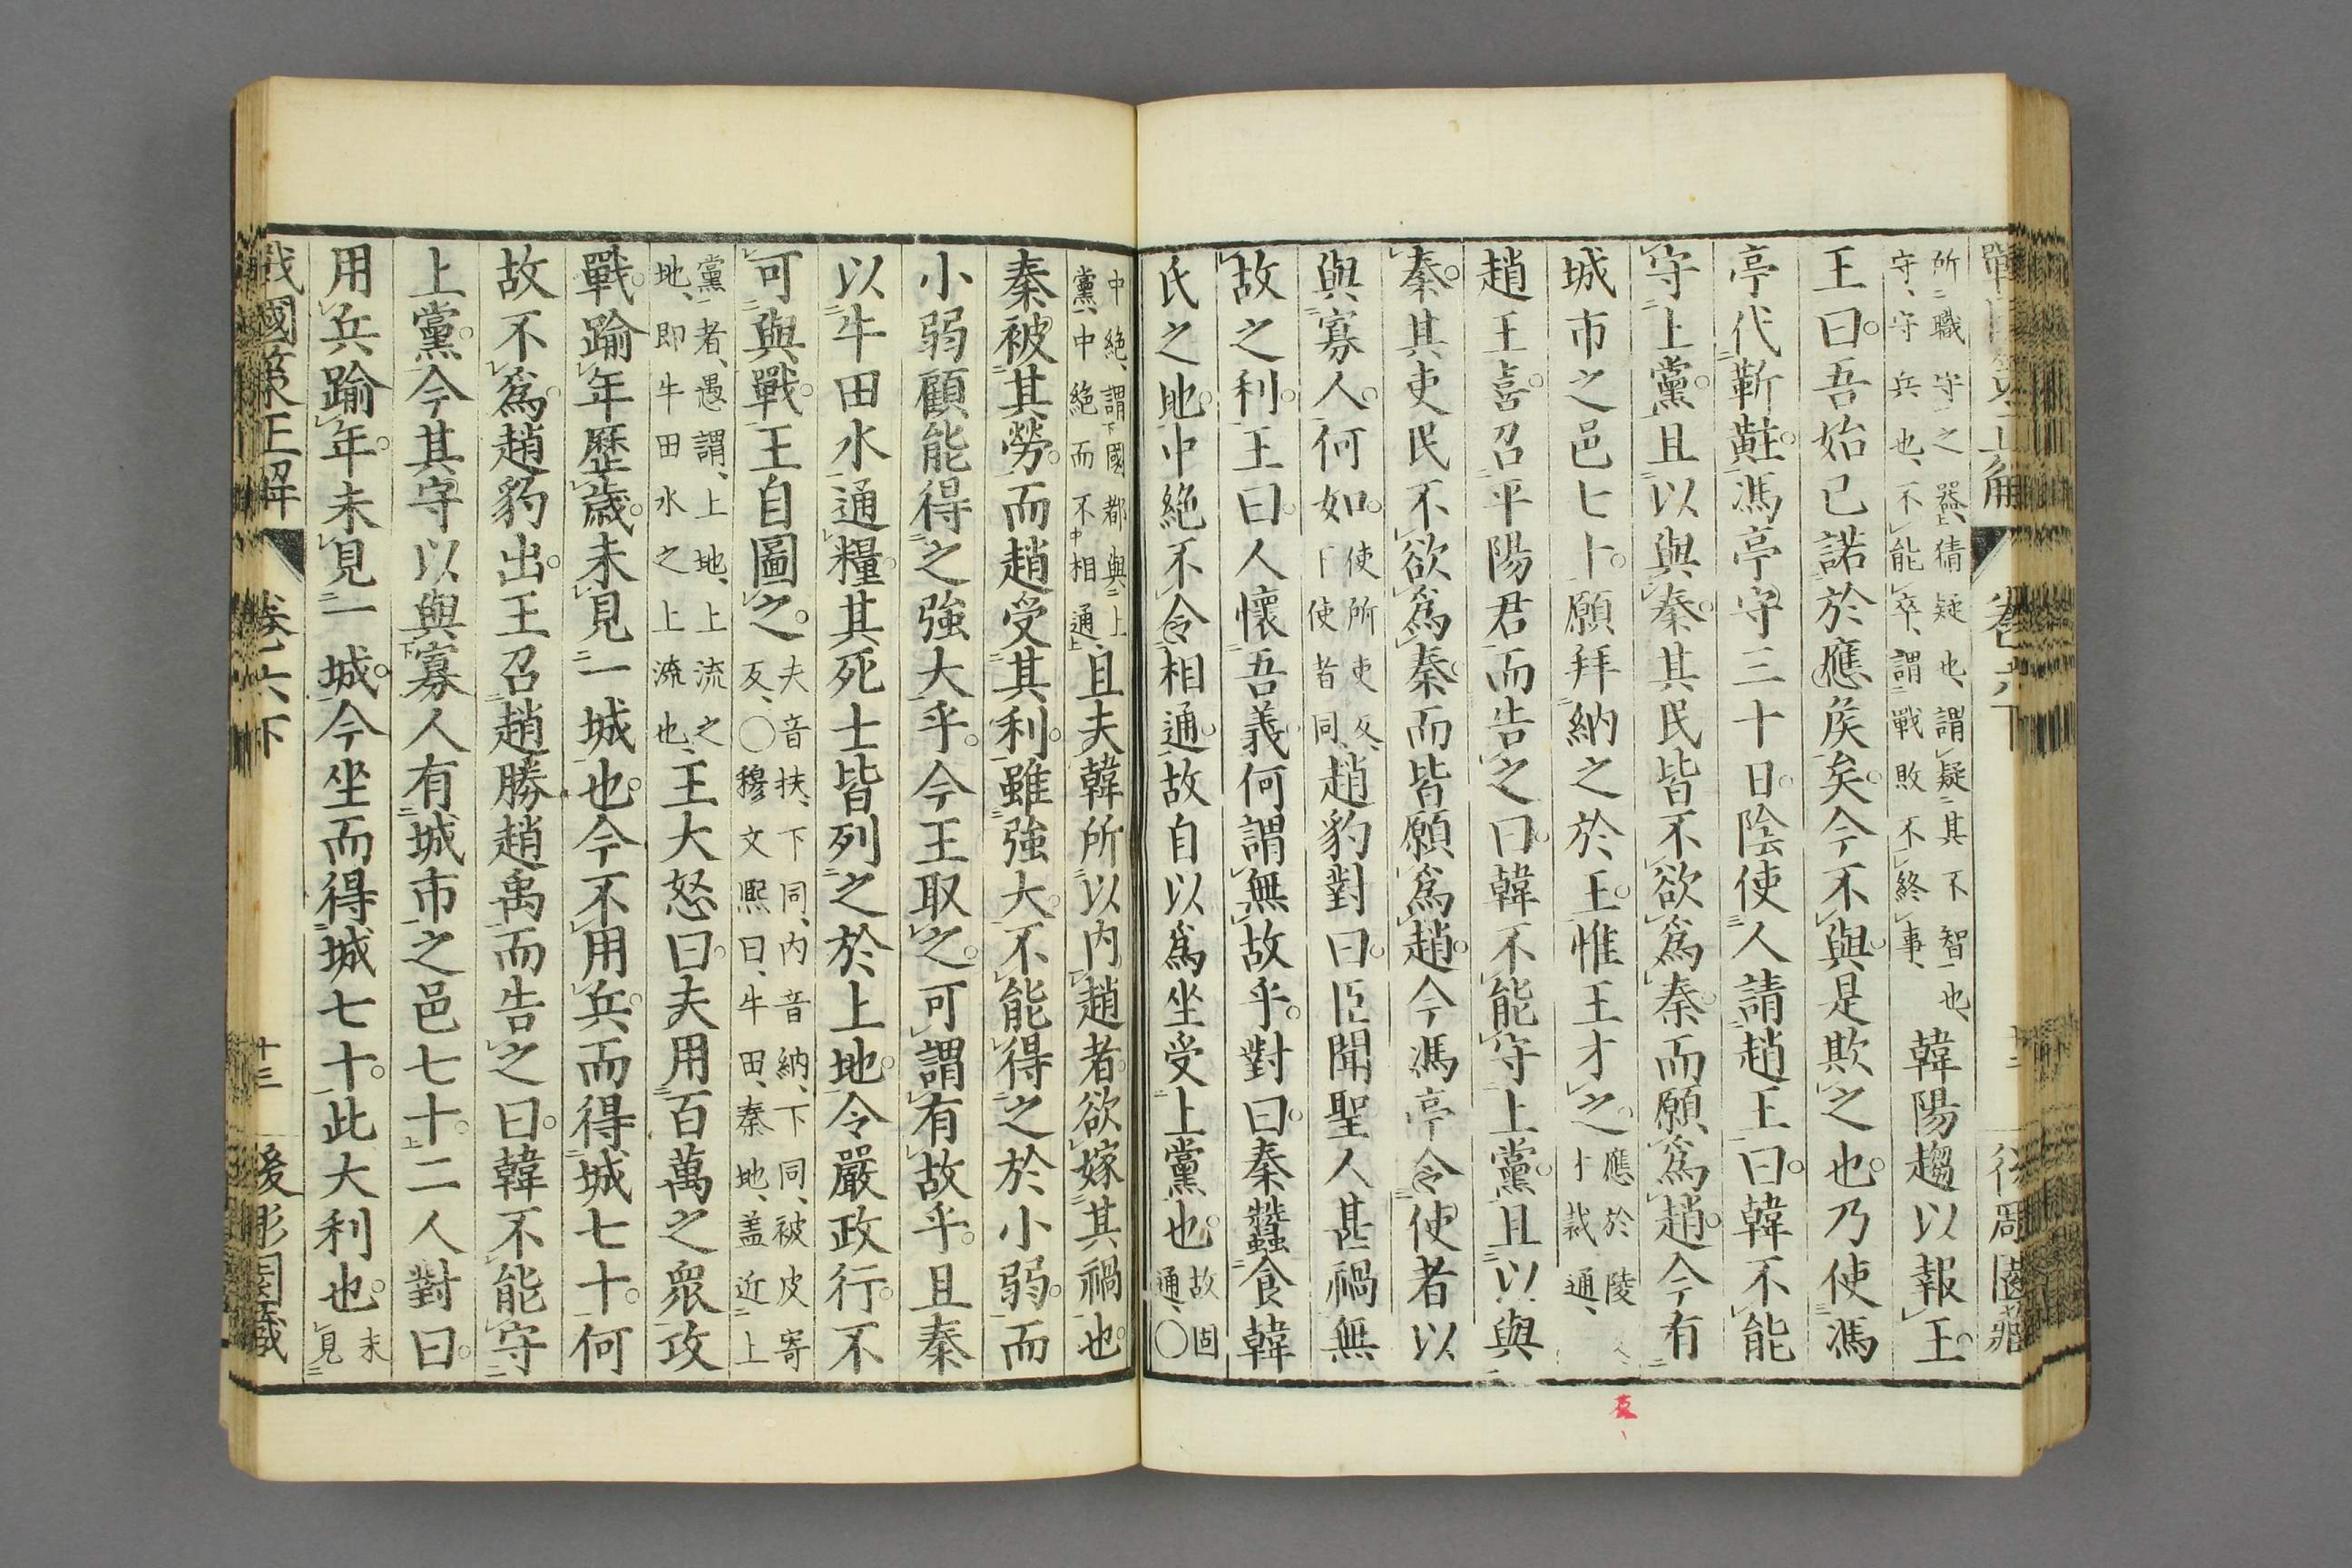 戰國策正解 卷六下 十二 後周園藏
所職守之器、猜疑也、謂疑其不智也、
守、守兵也、不能卒、謂戰敗不終事、韓陽趨以報王
王曰吾始已諾於應侯矣今不與是欺之也乃使馮
亭代靳黈馮亭守三十日陰使人請趙王曰韓不能
守上黨且以與秦其民皆不欲爲秦而願爲趙今有
城市之邑七十願拜納之於王惟王才之應於陵
才裁通、
趙王喜召平陽君而告之曰韓不能守上黨且以與
秦其吏民不欲爲秦而皆願爲趙今馮亭令使者以
與寡人何如使所吏反、
下使者同、趙豹對曰臣聞聖人甚禍無
故之利王曰人懷吾義何謂無故乎對曰秦蠶食韓
氏之地中絶不令相通故自以爲坐受上黨也故固
通、〇
中絶、謂國都與上
黨、中絶而不相通、且夫韓所以内趙者欲嫁其禍也
秦被其勞而趙受其利雖強大不能得之於小弱而
小弱顧能得之強大乎今王取之可謂有故乎且秦
以牛田水通糧其死士皆列之於上地令嚴政行不
可與戰王自圖之夫音扶、下同、内音納、下同、被皮寄
反、〇穆文熙曰、牛田、秦地、盖近上
黨者、愚謂、上地、上流之
地、即牛田水之上流也、王大怒曰夫用百萬之衆攻
戰踰年歷歲未見一城也今不用兵而得城七十何
故不爲趙豹出王召趙勝趙禹而告之曰韓不能守
上黨今其守以與寡人有城市之邑七十二人對曰
用兵踰年未見一城今坐而得城七十此大利也未
見
戰國策正解 卷六下 十三 後彫園藏